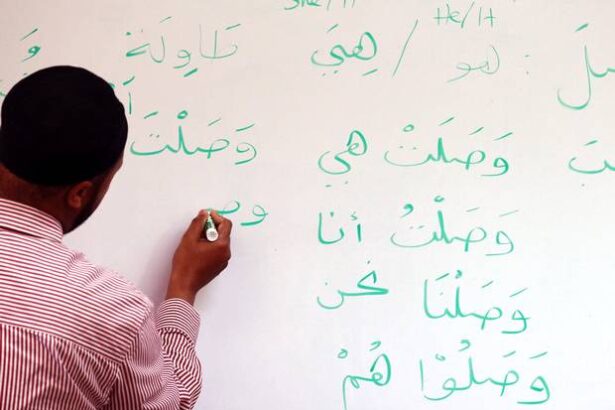 She / It
He/It
هو / هِيَ
طَاوِلَة
وَصَلَتْ هي
وَصَلْتَ
وَصَلْتُ أنا
وص
وَصَلْنَا نحن
وَصَلُوْا هُمْ